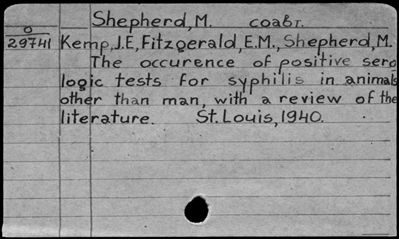 Shepherd, M. соавт.
0
29741
Kemp, J.E, Fitzgerald, E.M., Shepherd, M.
The occurence of positive sero
logic tests for syphilis in animals
other than man, with a review of the
literature. St. Louis, 1940.